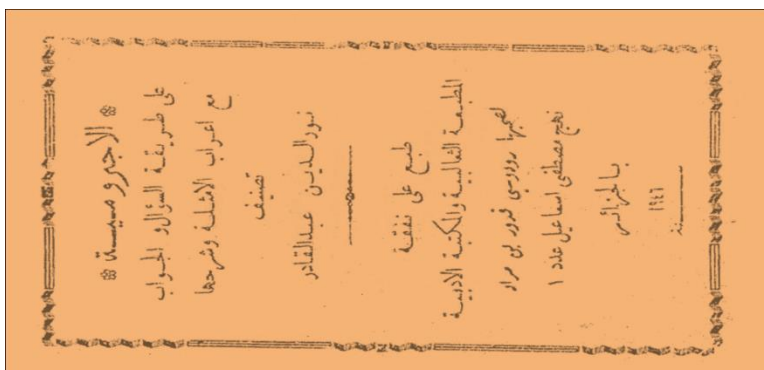 الاجرومية
على طريقة السؤال و الجواب
مع اعراب الامثلة وشرحها
تصنيف
نورالدين عبدالقادر
طبع على نفقة
المطبعة الثعالبية والمكتبة الادبية
لصاحبها رودوسي قدور بن مراد
نهج مصطفى اسماعيل عدد ١
بالجزائر
سنة ١٩٤٦